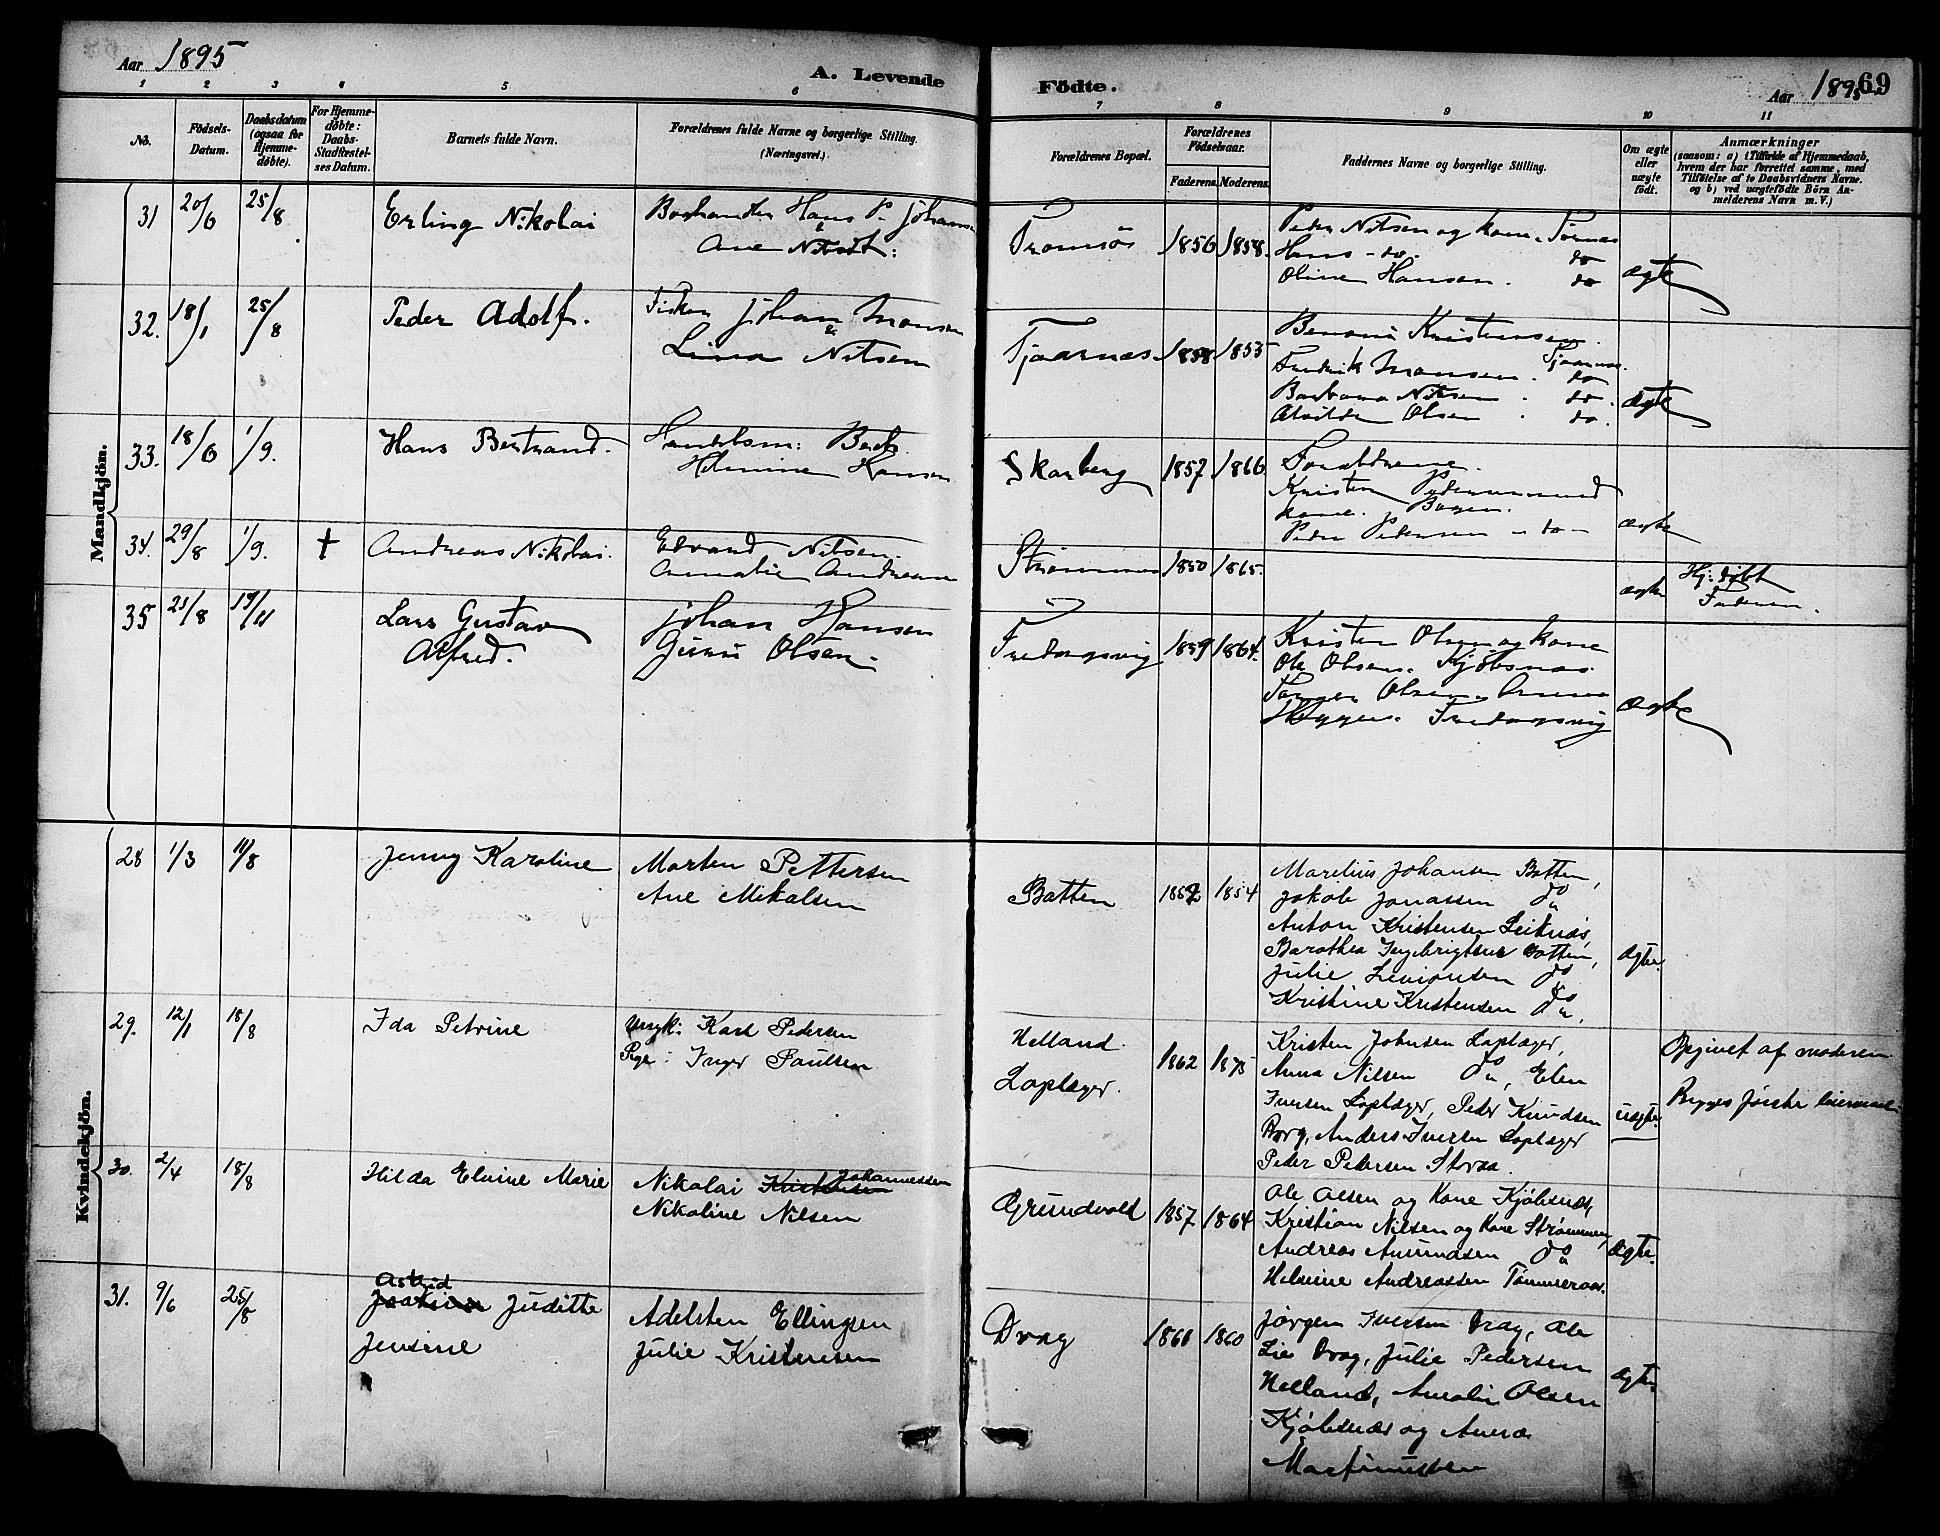 Aar 1895
A. Levende Födte.
Aar 1895
69
1 2 3 4 5 6 7 8 9 10 11
No.
Födsels-Datum.
Daabsdatum (ogsaa for Hjemmedøbte).
For Hjemmedøbte: Daabs-Stadfæstelses Datum.
Barnets fulde Navn.
Forældrenes fulde Navne og borgerlige Stilling. (Næringsvei.)
Forældrenes Bopæl.
Forældrenes Födselsaar.
Faderens. Moderens.
Faddernes Navne og borgerlige Stilling.
Om ægte eller uægte födt.
Anmærkninger
(saasom: a) i Tilfælde af Hjemmedaab,
hvem der har forrettet samme, med
Tilföielse af to Daabsvidners Navne.
og b) ved uægtefödte Börn Anmelderens Navn m. V.)
Mandkjön.
31 20/6 25/8 Erling Nikolai
Hans P. Johansen
Ane
Tromsös 1856 1858.
Peder Nilsen og kone
Hans - do. do
Oline Hansen. do
ægte
32. 18/1 25/8 Peder Adolf.
Fisker Johan Monsen
&
Lina Nilsen
Tjaarnæs 1858 1855
Benoni Kristensen
Tjaarnæs.
Fredrik Monsen. do
Barbara Nilsen. do.
Alvilde Olsen. do.
ægte
33. 18/6 1/9. Hans Bertrand.
Handelsm: Back
Helmine Hansen
Skarberg 1857 1866
Forældrene.
Kristen Pedersen med
kone. Bogen.
Peder Pedersen - do -
ægte
34. 29/8 1/9. † Andreas Nikolai.
Edvard Nilsen.
Amalie Andreasen
Strömmen 1850 1865.
ægte
Hj: döbt
Faderen.
35 25/8 19/11 Lars Gustav
Alfred.
Johan Hansen
Guru Olsen.
Fredagsvig 1859 1864.
Kristen Olsen og kone
Ole Olsen. Kjöbsnæs.
Olsen. Anna
Fredagsvig
ægte
Kvindekjön.
28 1/3 11/8 Jenny Karoline
Morten Pettersen
Ane Mikalsen
Botten 1852 1854
Marelius Johansen Botten,
Jakob Jonassen do
Anton Kristensen Leiknæs,
Barothea Ingebrigtsen Botten,
Julie Simonsen do
Kristine Kristensen do,
ægte.
29. 12/1 18/8 Ida Petrine
Ungk: Karl Pedersen
Pige: Inger Paulsen
Helland.
Loplager. 1862 1875
Kristen Johnsen Loplager,
Anna Nilsen do, Elen
Iversen Loplager, Peder Knudsen
Borg, Anders Iversen Loplager
Peder Pedersen Storaa.
uægte.
Opgivet af moderen
Begges förste leiermaal.
30. 2/4 18/8 Hilda Elvine Marie
Nikolai Kristensen Johannessen
Nikoline Nilsen
Grundvold 1857 1864
Ole Olsen og Kone Kjöbsnæs,
Kristian Nilsen og Kone Strømmen,
Andreas Amundsen do
Helmine Andreassen Tömmeraas.
ægte.
31. 9/6 25/8 Astrid
Joakime Juditte
Jensine
Adelsten Ellingsen
Julie Kristensen
Drag 1861 1860
Jørgen Iversen Drag, Ole
Lie Drag, Julie Pedersen
Helland, Amalie Olsen
Kjöbsnæs og Anna
Martinussen
ægte